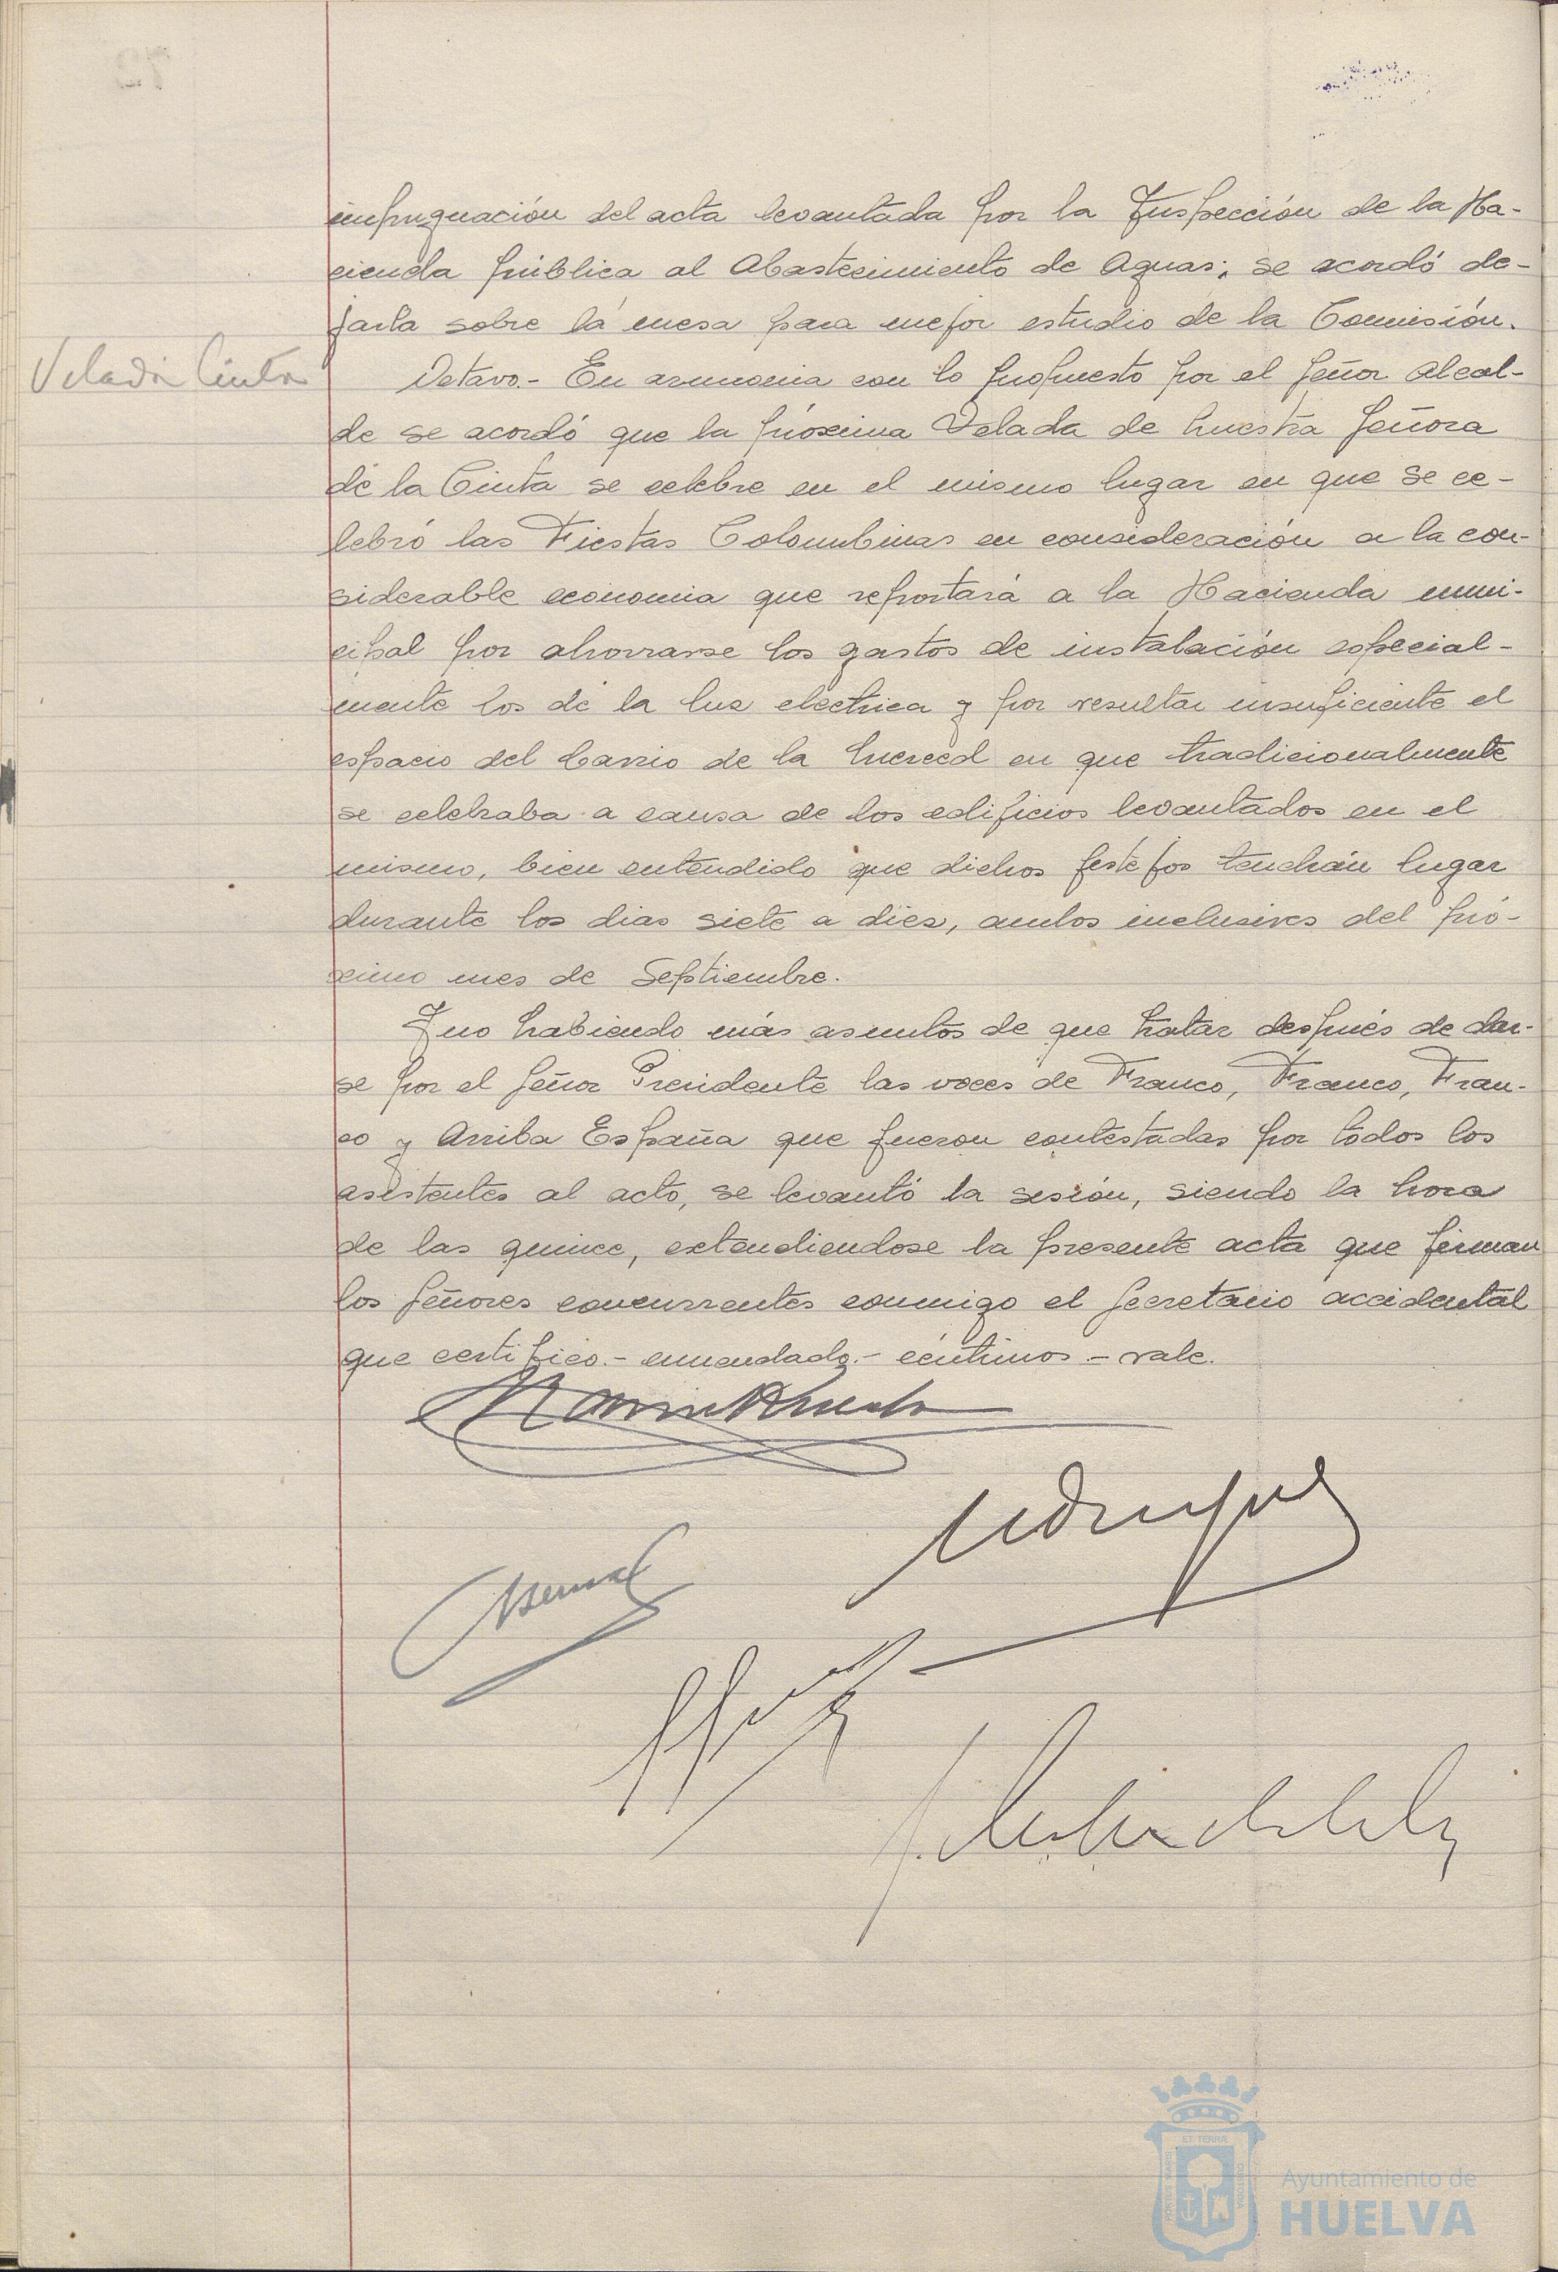 impugnación del acta levantada por la Inspección de la Ha-
cienda pública al Abastecimiento de Aguas; se acordó de-
jarla sobre la mesa para mejor estudio de la Comisión.
Velada Cinta
Octavo.- En armonia con lo propuesto por el Señor Alcal-
de se acordó que la próxima Velada de Nuestra Señora
de la Cinta se celebre en el mismo lugar en que se ce-
lebró las Fiestas Colombinas en consideración a la con-
siderable economia que reportará a la Hacienda muni-
cipal por ahorrarse los gastos de instalación especial-
mente los de la luz electrica y por resultar insuficiente el
espacio del barrio de la Merced en que tradicionalmente
se celebraba a causa de los edificios levantados en el
mismo, bien entendido que dichos festejos tendrán lugar
durante los dias siete a diez, ambos inclusives del pró-
ximo mes de Septiembre.
Y no habiendo más asuntos de que tratar después de dar-
se por el Señor Presidente las voces de Franco, Franco, Fran-
co y Arriba España que fueron contestadas por todos los
asistentes al acto, se levantó la sesión, siendo la hora
de las quince, extendiendose la presente acta que firman
los Señores concurrentes conmigo el Secretario accidental
que certifico.- enmendado.- céntimos.- vale.
Bernal
ET TERRA
Ayuntamiento de
HUELVA